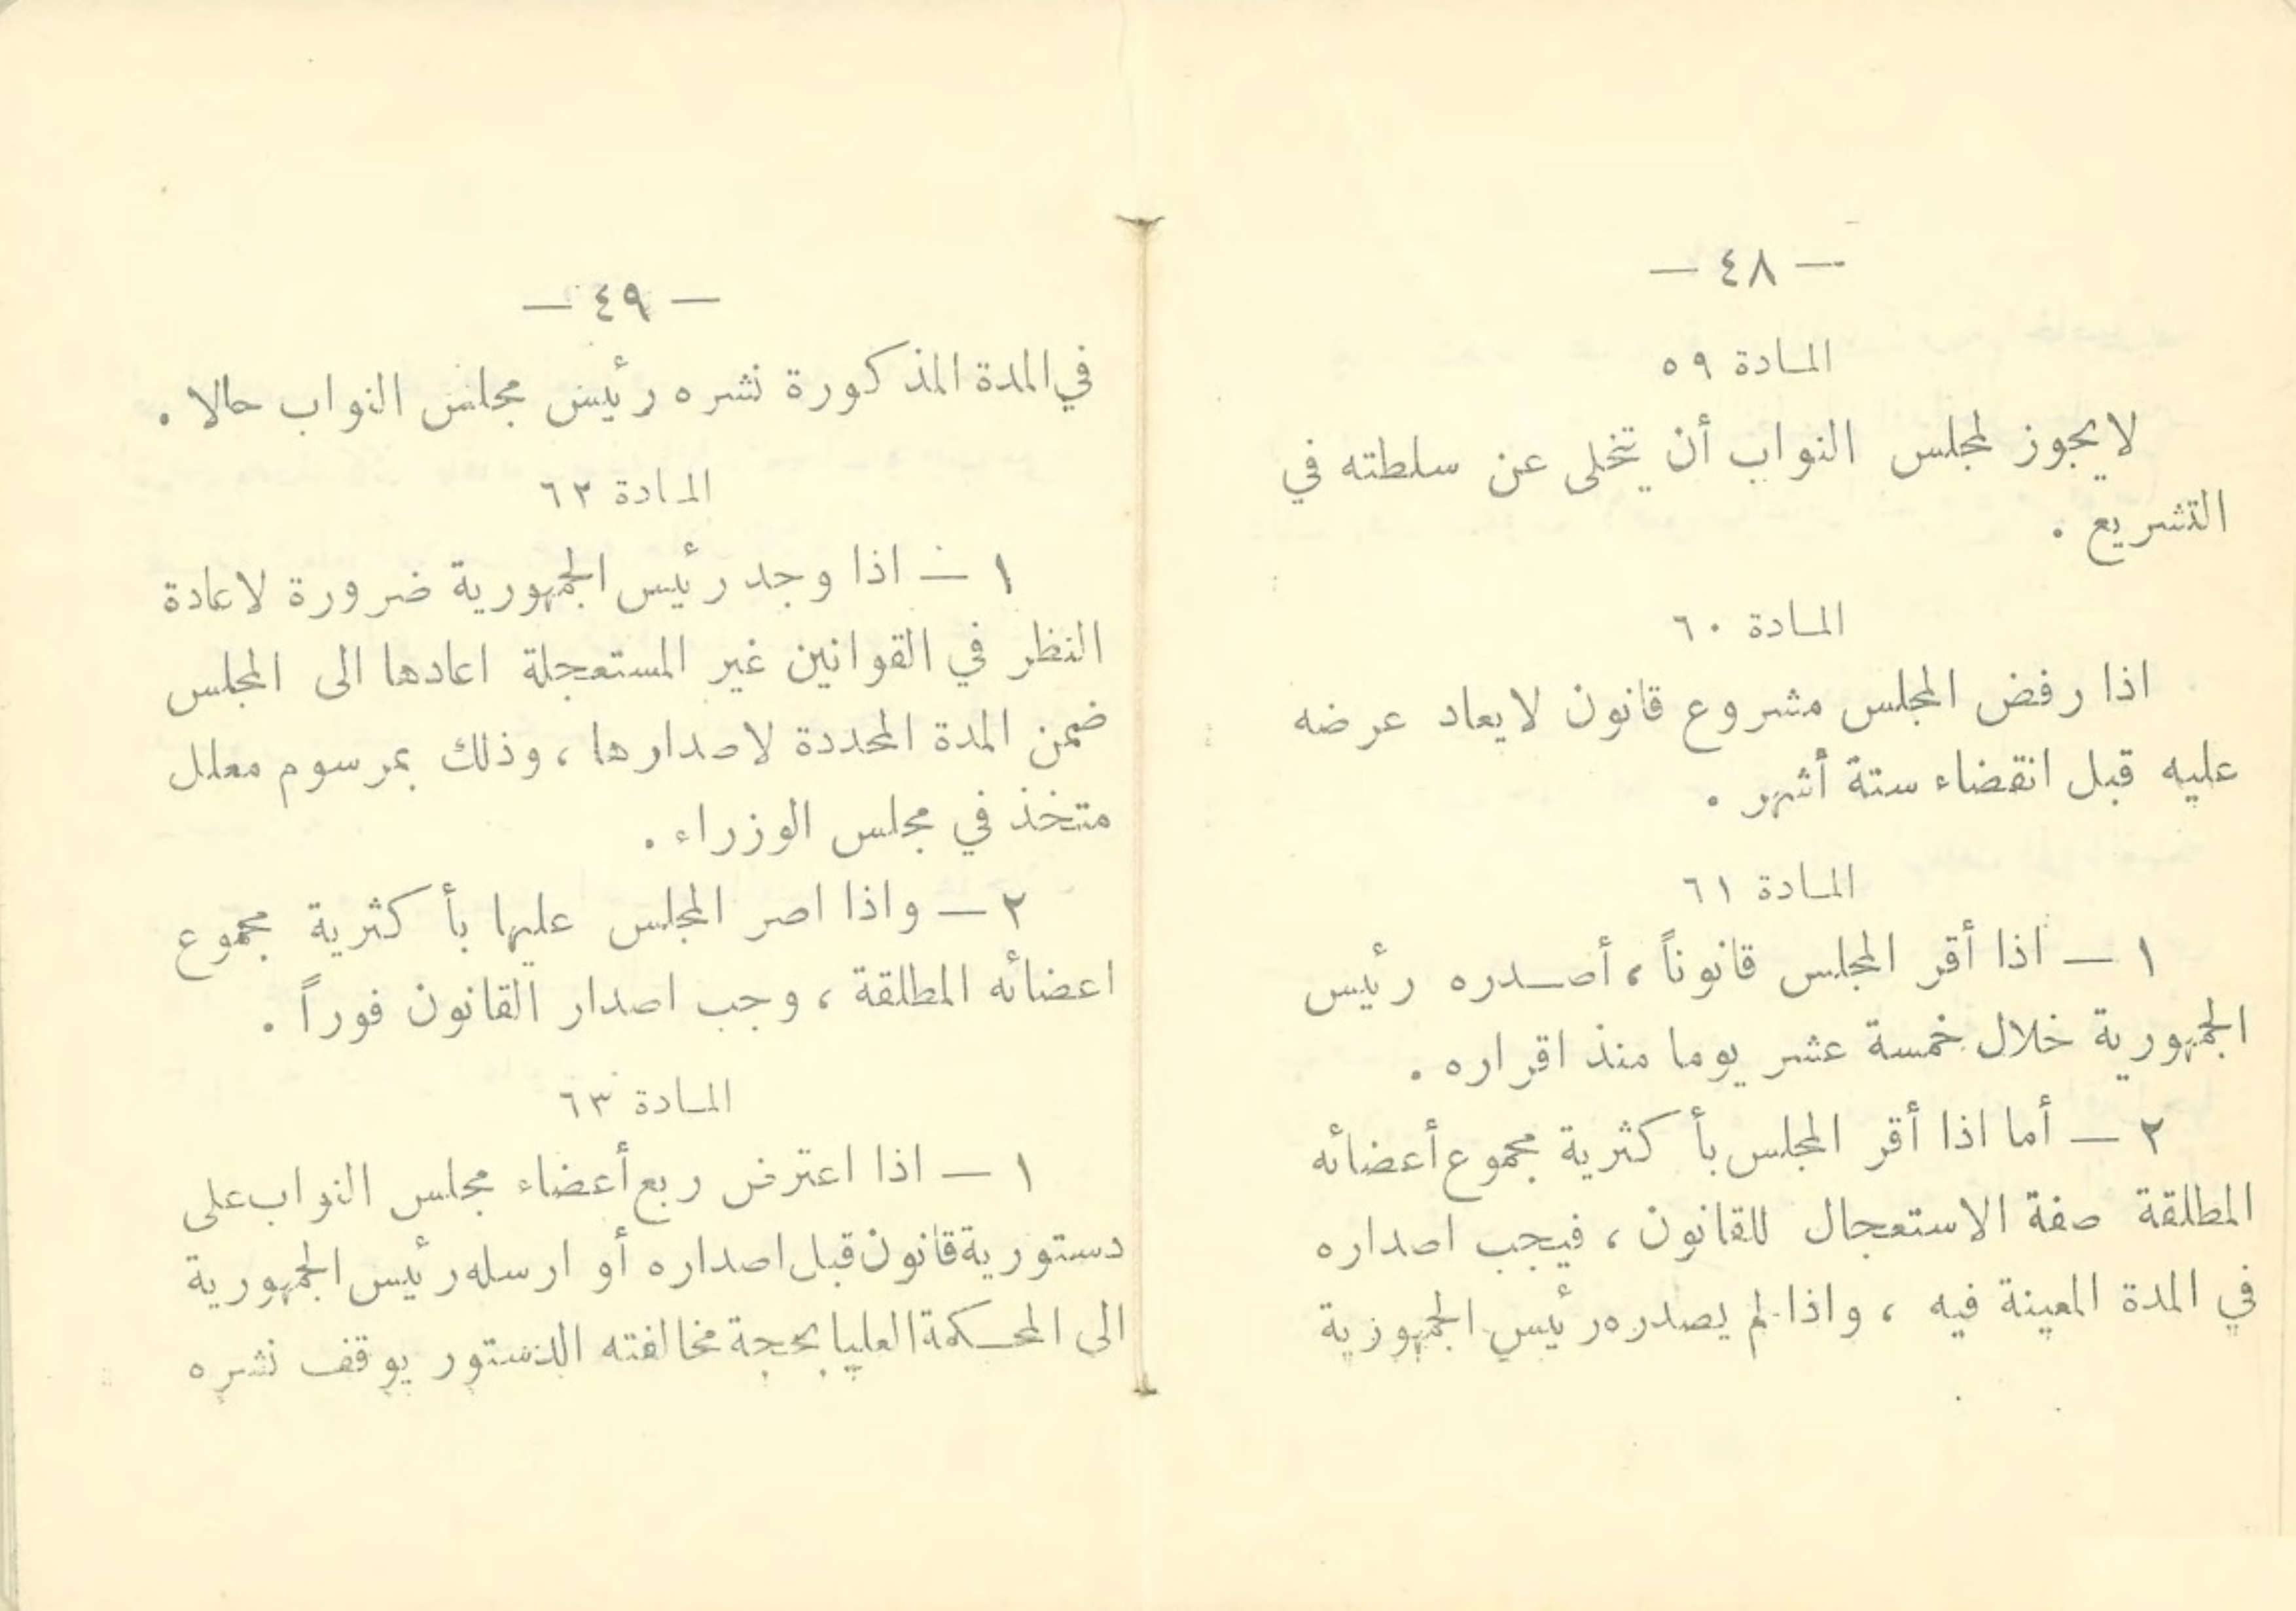 — ٤٨ —
المادة ٥٩
لا يجوز لمجلس النواب أن يتخلى عن سلطته في
التشريع .
المادة ٦٠
اذا رفض المجلس مشروع قانون لايعاد عرضه
عليه قبل انقضاء ستة أشهر .
المادة ٦١
١ — اذا أقر المجلس قانوناً ، أصدره رئيس
الجمهورية خلال خمسة عشر يوما منذ اقراره .
٢ — أما اذا أقر المجلس بأكثرية مجموع أعضائه
المطلقة صفة الاستعجال للقانون ، فيجب اصداره
في المدة المعينة فيه ، واذا لم يصدره رئيس الجمهورية
— ٤٩ —
في المدة المذكورة نشره رئيس مجلس النواب حالا .
المادة ٦٢
١ — اذا وجد رئيس الجمهورية ضرورة لاعادة
النظر في القوانين غير المستعجلة اعادها الى المجلس
ضمن المدة المحددة لاصدارها ، وذلك بمرسوم معلل
متخذ في مجلس الوزراء .
٢ — واذا اصر المجلس عليها بأكثرية مجموع
اعضائه المطلقة ، وجب اصدار القانون فوراً .
المادة ٦٣
١ — اذا اعترض ربع أعضاء مجلس النواب على
دستورية قانون قبل اصداره أو ارسله رئيس الجمهورية
الى المحكمة العليا بحجة مخالفته الدستور يوقف نشره